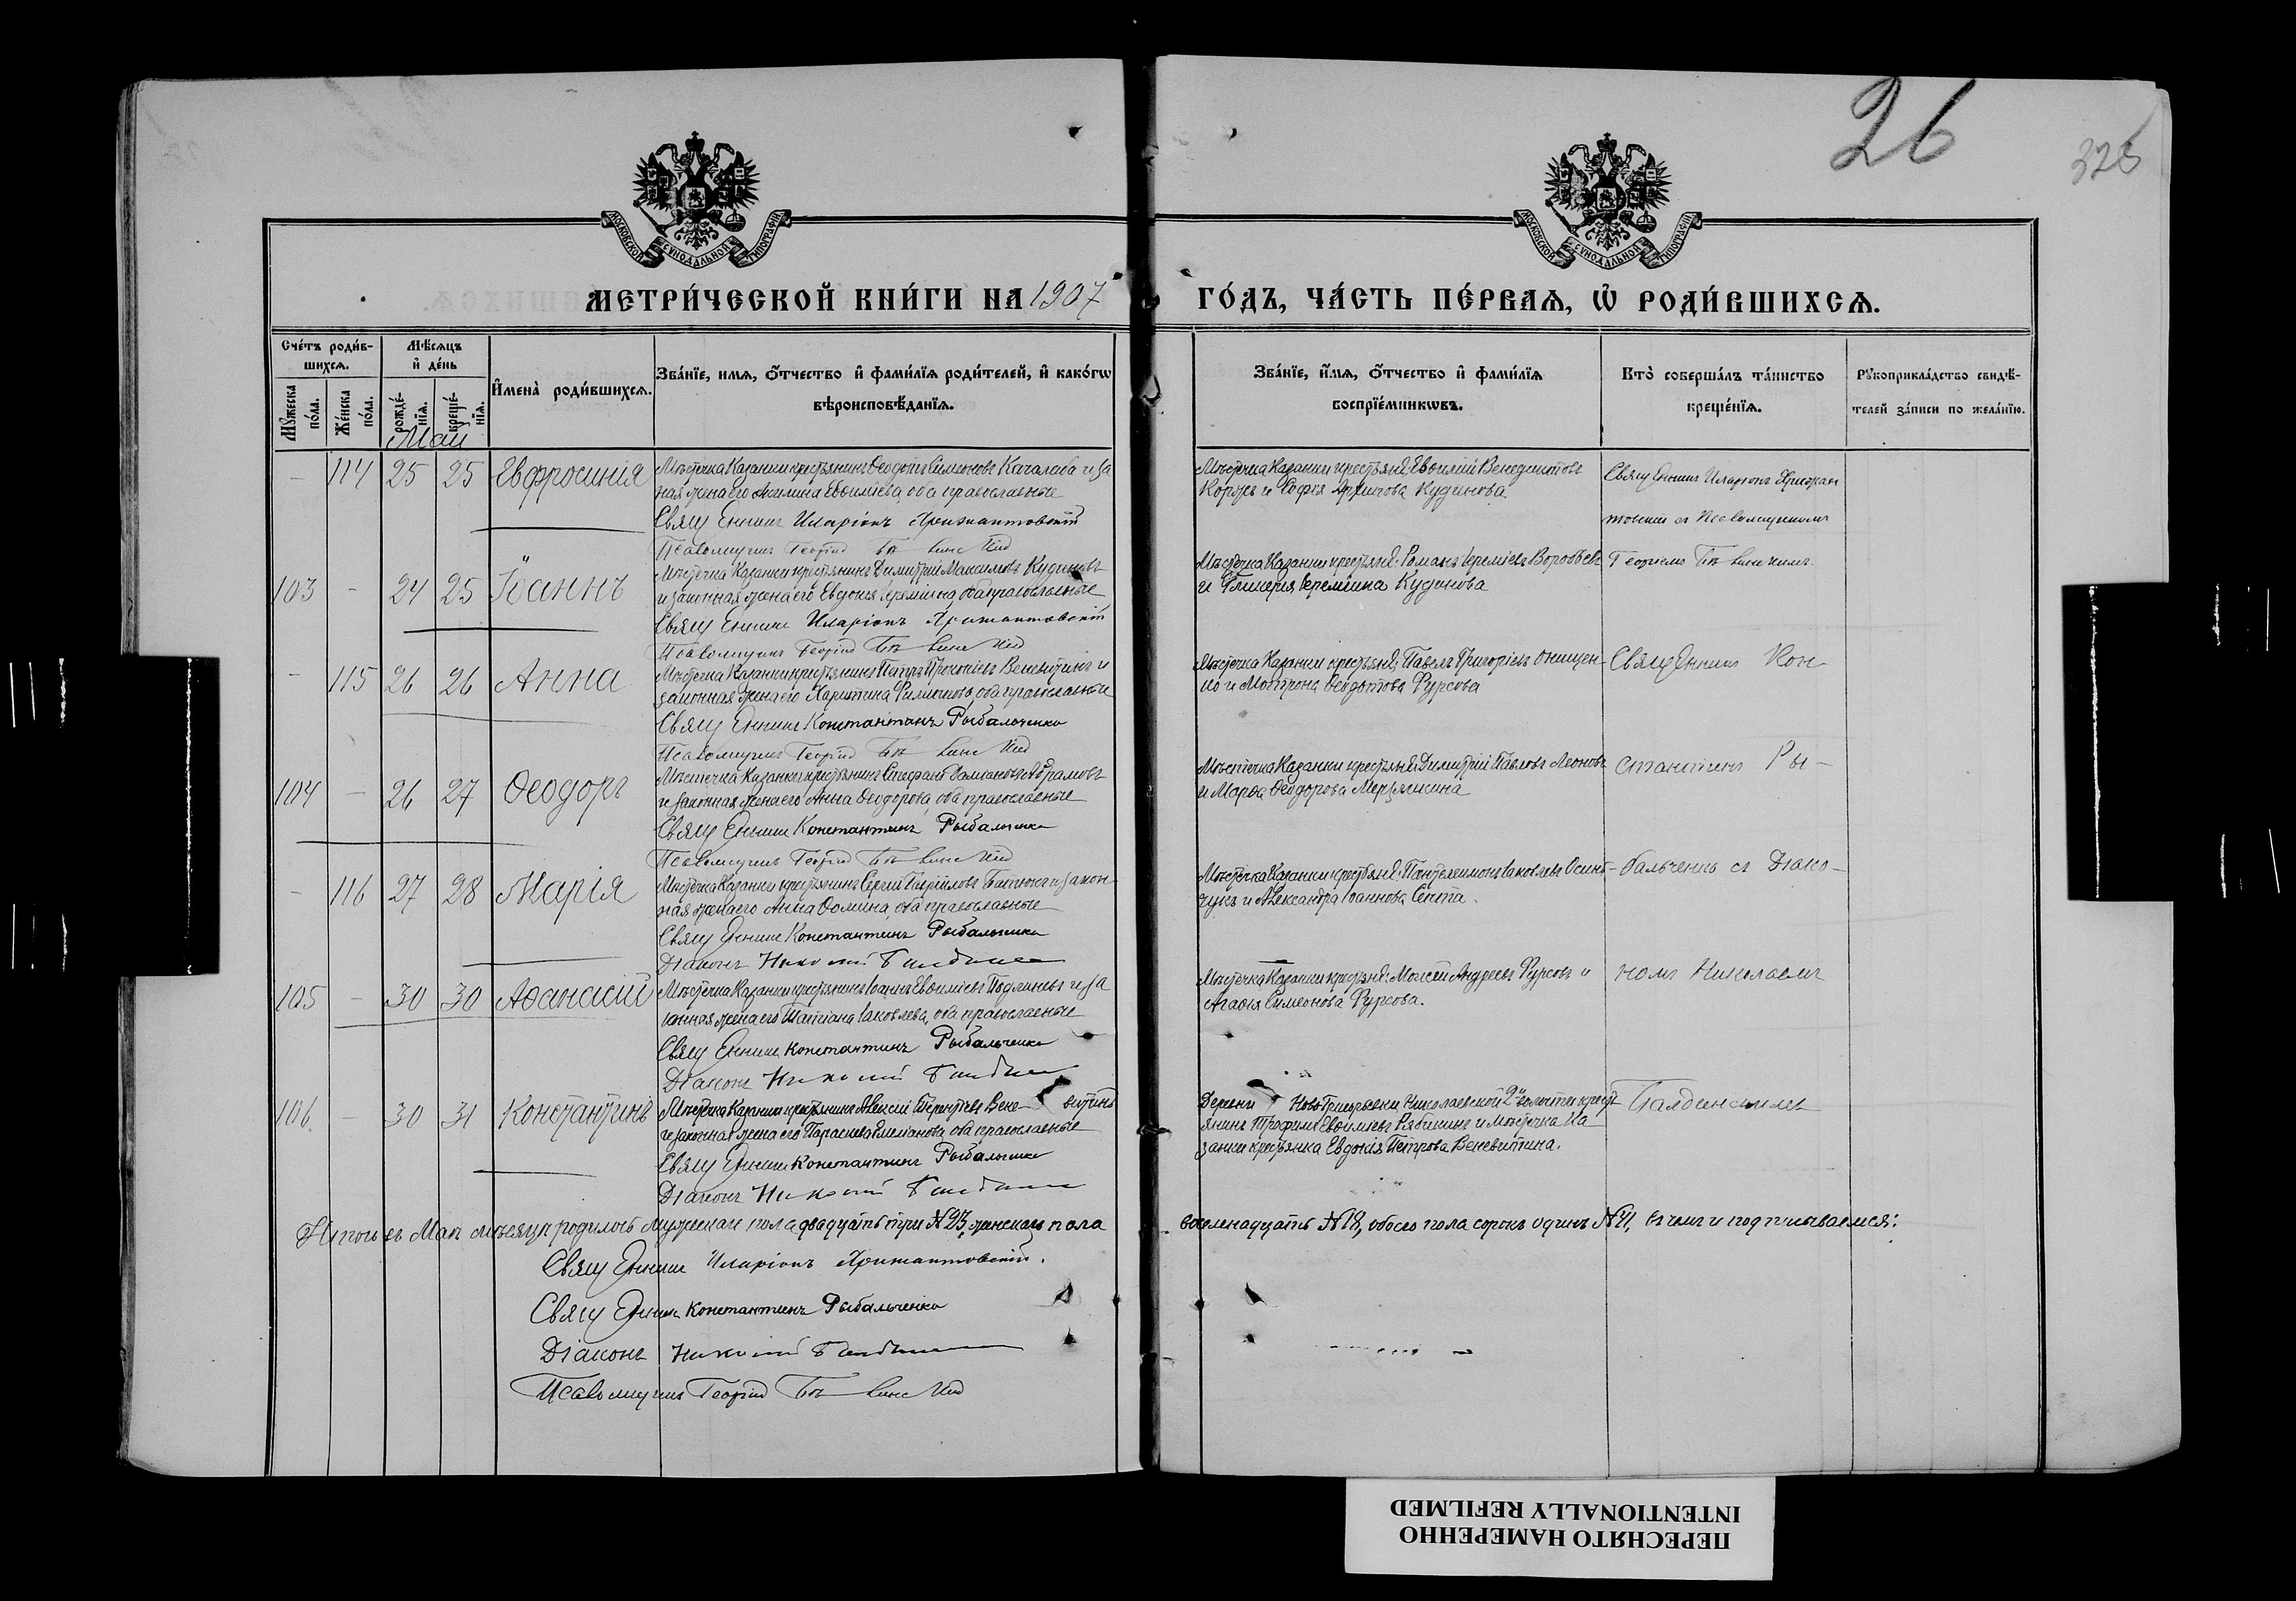 26
326
МОСКОВСКОЙ СѴНОДАЛЬНОЙ ТИПОГРАФІИ
МОСКОВСКОЙ СѴНОДАЛЬНОЙ ТИПОГРАФІИ
МЕТРИ́ЧЕСКОЙ КНИ́ГИ НА 1907
ГО́ДЪ, ЧА́СТЬ ПЕ́РВАѦ, Ѡ҆ РОДИ́ВШИХСѦ.
Сче́тъ роди́в-
шихсѧ.
Мꙋ́жеска по́ла.
Же́нска по́ла.
Мѣ́сѧцъ
и҆ де́нь
рожде́-нїѧ.
креще́-нїѧ.
И҆мена̀ роди́вшихсѧ.
Зва́нїе, имѧ, о҆́тчество и҆ фами́лїѧ роди́телей, и҆ како́гѡ
вѣроисповѣ́данїѧ.
Зва́нїе, и҆́мѧ, о҆́тчество и҆ фами́лїѧ
воспрїе́мникѡвъ.
Кто̀ соверша́лъ та́инство
креще́нїѧ.
Рꙋкоприкла́дство свидѣ́-
телей за́писи по жела́нїю.
Май
- 114 25 25 Евфросинія
Мѣстечка Казанки крестьянинъ Ѳеодоръ Симеоновъ Качалаба и за
ная жена его Акилина Евѳиміева, оба православные
Священникъ Иларіонъ Хрисантовскій
Псаломщикъ Георгій
Мѣстечка Казанки крестьяне: Евѳимій Венедиктовъ
Коржъ и Софія Архипова Кудинова
Священникъ Иларіонъ Хрисан
товскій съ Псаломщикомъ
103 - 24 25 Іоаннъ
Мѣстечка Казанки крестьянинъ Димитрій Максимовъ Кудиновъ
и законная жена его Евдокія Іереміина, оба православные
Священникъ Иларіонъ Хрисантовскій
Псаломщикъ Георгій
Мѣстечка Казанки крестьяне: Романъ Іереміевъ Воробьевъ
и Гликерія Іереміина Кудинова
Георгіемъ
- 115 26 26 Анна
Мѣстечка Казанки крестьянинъ Петръ Прокопіевъ Веневитинъ и
законная жена его Харитина Филиппова, оба православные
Священникъ Константинъ Рыбальченко
Псаломщикъ Георгій
Мѣстечка Казанки крестьяне: Павелъ Григоріевъ Онищен-
ко и Мотрона Ѳеодотова Фурсова
Священникъ Кон-
104 - 26 27 Ѳеодоръ
Мѣстечка Казанки крестьянинъ Стефанъ Даміановъ Абрамовъ
и законная жена его Анна Ѳеодорова, оба православные
Священникъ Константинъ Рыбальченко
Псаломщикъ Георгій
Мѣстечка Казанки крестьяне: Димитрій Павловъ Леоновъ
и Марѳа Ѳеодорова Мерзликина
стантинъ Ры-
- 116 27 28 Марія
Мѣстечка Казанки крестьянинъ Сергій Гавріиловъ и закон-
ная жена его Анна Ѳомина, оба православные
Священникъ Константинъ Рыбальченко
Діаконъ Николай
Мѣстечка Казанки крестьяне: Пантелеимонъ Іаковлевъ Осинь-
чукъ и Александра Іоаннова Сента.
бальченко съ Діако-
105 - 30 30 Аѳанасій
Мѣстечка Казанки крестьянинъ Іоаннъ Евѳиміевъ и за
конная жена его Татіана Іаковлева, оба православные
Священникъ Константинъ Рыбальченко
Діаконъ Николай
Мѣстечка Казанки крестьяне: Моисей Андреевъ Фурсовъ и
Агафія Симеонова Фурсова.
номъ Николаемъ
106. - 30 31 Константинъ
Мѣстечка Казанки крестьянинъ Алексій Терентіевъ Вене- витинъ
и законная жена его Параскева Емеліанова, оба православные
Священникъ Константинъ Рыбальченко
Діаконъ Николай
Деревни Ново-Григорьевки, Николаевской 2й волости крест-
янинъ Трофимъ Евѳиміевъ Рябикинъ и мѣстечка Ка
занки крестьянка Евдокія Петрова Веневитина.
Итого въ Маѣ мѣсяцѣ родилось мужескаго пола двадцать три № 23, женскаго пола
восемнадцать № 18, обоего пола сорокъ одинъ № 41, въ чемъ и подписываемся:
Священникъ Иларіонъ Хрисантовскій.
Священникъ Константинъ Рыбальченко
Діаконъ Николай
Псаломщикъ Георгій
ПЕРЕСНЯТО НАМЕРЕННО
INTENTIONALLY REFILMED